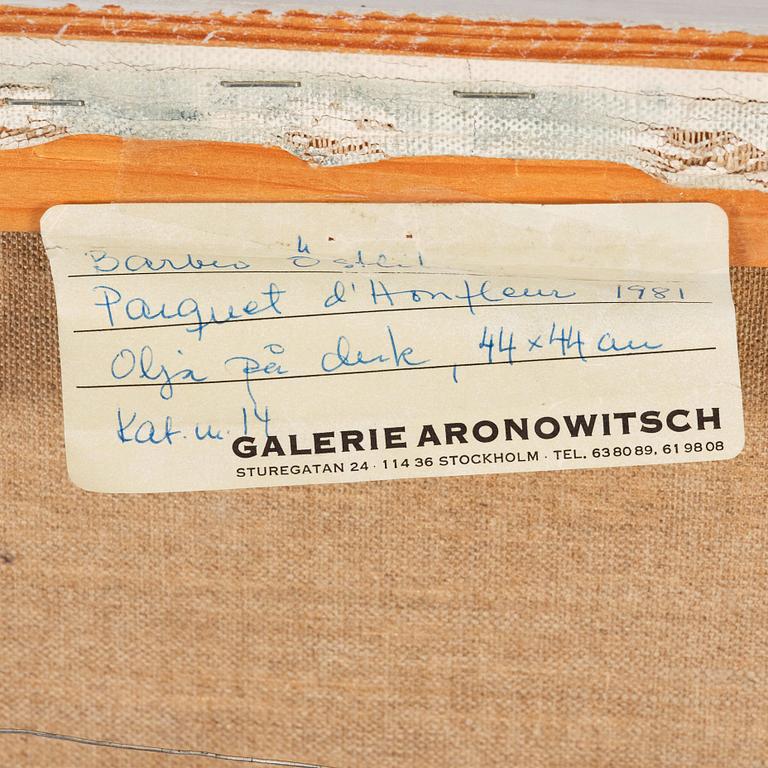 Barbro Östlihn
Parquet d'Honfleur 1981
Olja på duk, 44x44 cm
Kat. nr. 14
GALERIE ARONOWITSCH
STUREGATAN 24 · 114 36 STOCKHOLM · TEL. 638089, 619808